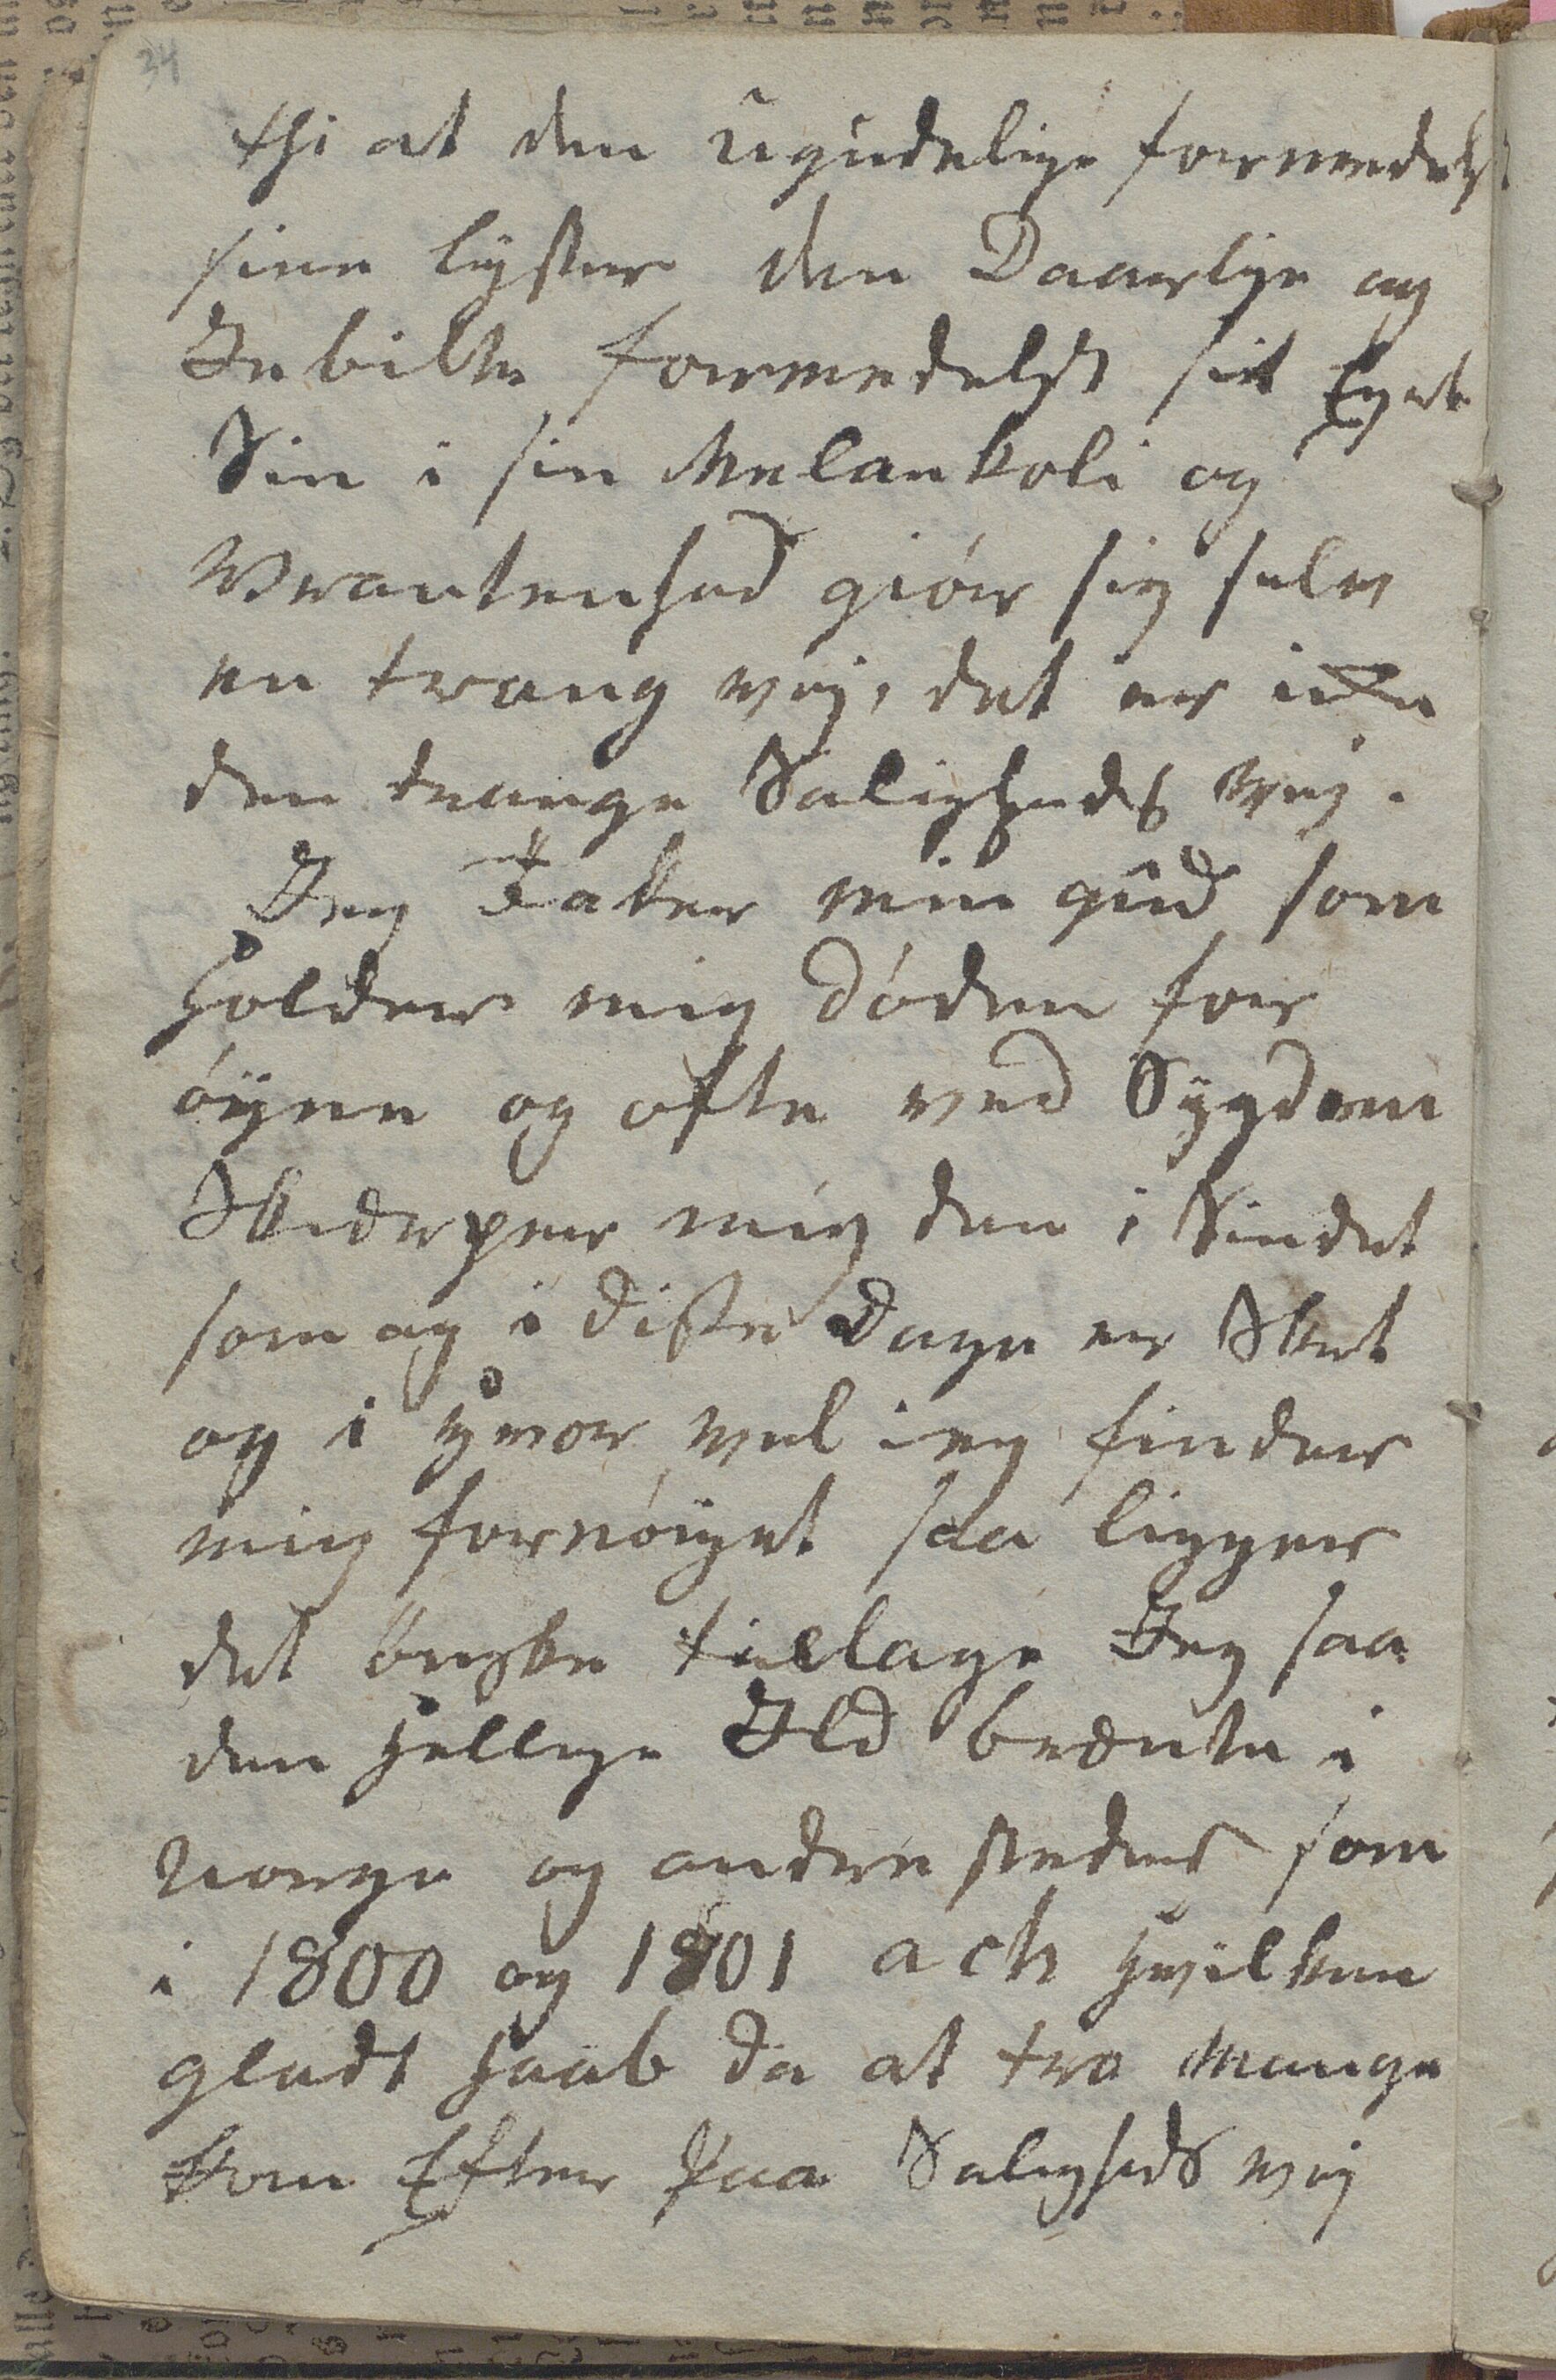 34
thi at den ugudelige formedelst
sine lyster den Daarlige og
Inbilte formedelst sit Eget
Sin i sin Melankoli og
Vrantenhed giör sig selv
en trang vej, det er icke
den trange Saligheds vej.
Jeg Takker min gud som
holder mig döden for
öyene og ofte ved Sygdom
Skiærper mig den i Sindet
som og i disse Dage er Sket
og i hvor vel ieg finder
mig fornöyet saa ligger
det önske tilbage Jeg saa
den hellige Ild brænte i
Norge og andre steder som
i 1800 og 1801 ach hvilken
gladt haab da at tro mange
kom Efter paa Saligheds vej